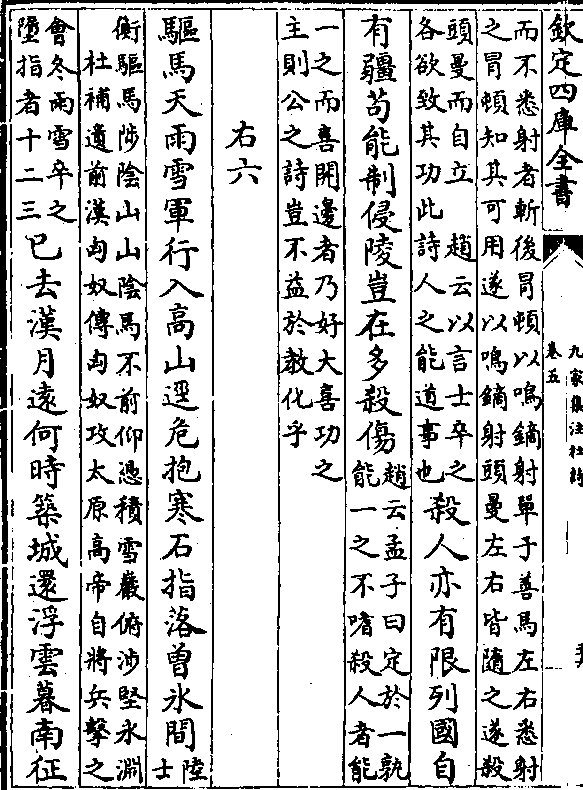 欽定四庫全書
卷五
九家集注杜詩
而不悉射者斬後冒頓以鳴鏑射單于善馬左右悉射
之冒頓知其可用遂以鳴鏑射頭曼左右皆隨之遂殺
頭曼而自立　趙云以言士卒之
各欲致其功此詩人之能道事也
殺人亦有限列國自
有疆苟能制侵陵豈在多殺傷
趙云孟子曰定於一孰
能一之不嗜殺人者能
一之而喜開邊者乃好大喜功之
主則公之詩豈不益於教化乎
右六
驅馬天雨雪軍行入高山逕危抱寒石指落曾冰間
陸
士
衡驅馬陟陰山山陰馬不前仰憑積雪巖俯涉堅氷淵
杜補遺前漢匈奴傳匈奴攻太原高帝自將兵擊之
會冬雨雪卒之
墮指者十二三
已去漢月遠何時築城還浮雲暮南征